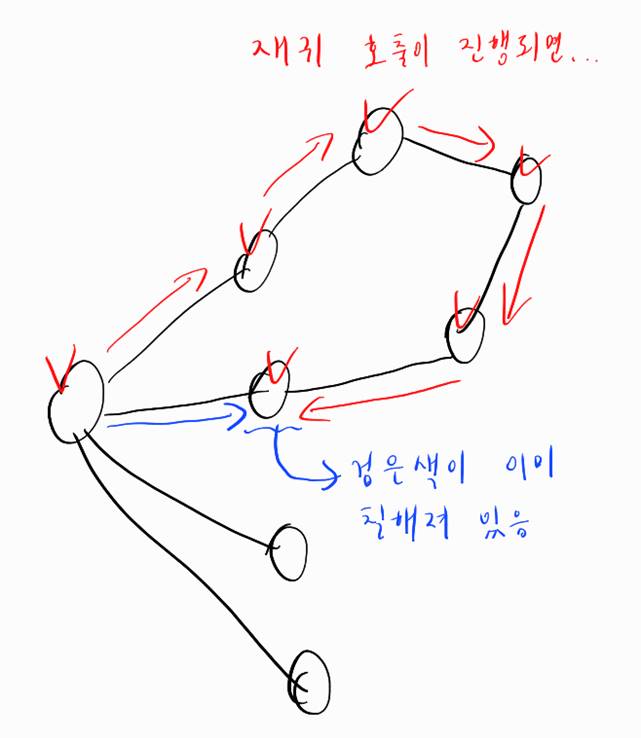 재귀 호출이 진행되면...
검은색이 이미
칠해져 있음